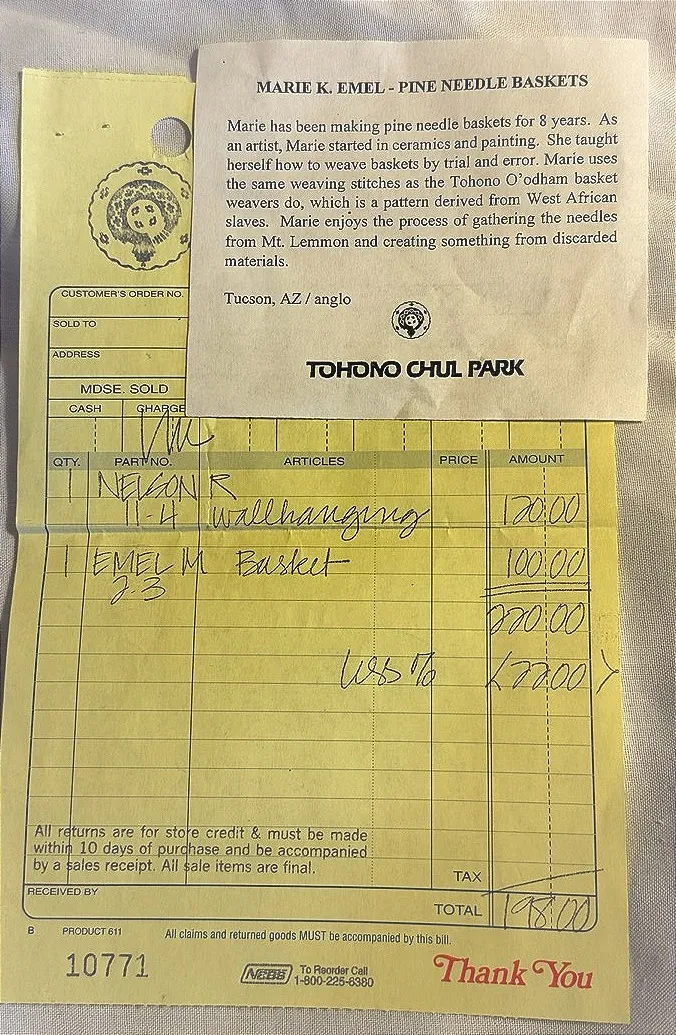 MARIE K. EMEL - PINE NEEDLE BASKETS
Marie has been making pine needle baskets for 8 years. As
an artist, Marie started in ceramics and painting. She taught
herself how to weave baskets by trial and error. Marie uses
the same weaving stitches as the Tohono O'odham basket
weavers do, which is a pattern derived from West African
slaves. Marie enjoys the process of gathering the needles
from Mt. Lemmon and creating something from discarded
materials.
Tucson, AZ / anglo
TOHONO CHUL PARK
CUSTOMER'S ORDER NO.
SOLD TO
ADDRESS
MDSE. SOLD
CASH CHARGE
QTY. PART NO. ARTICLES PRICE AMOUNT
1 NELSON R
11-4 wallhanging 120.00
1 EMEL M Basket 100.00
2-3
220.00
less % <22.00>
All returns are for store credit & must be made
within 10 days of purchase and be accompanied
by a sales receipt. All sale items are final.
TAX
RECEIVED BY
TOTAL 198.00
B PRODUCT 611 All claims and returned goods MUST be accompanied by this bill.
10771
NEBS To Reorder Call
1-800-225-6380
Thank You